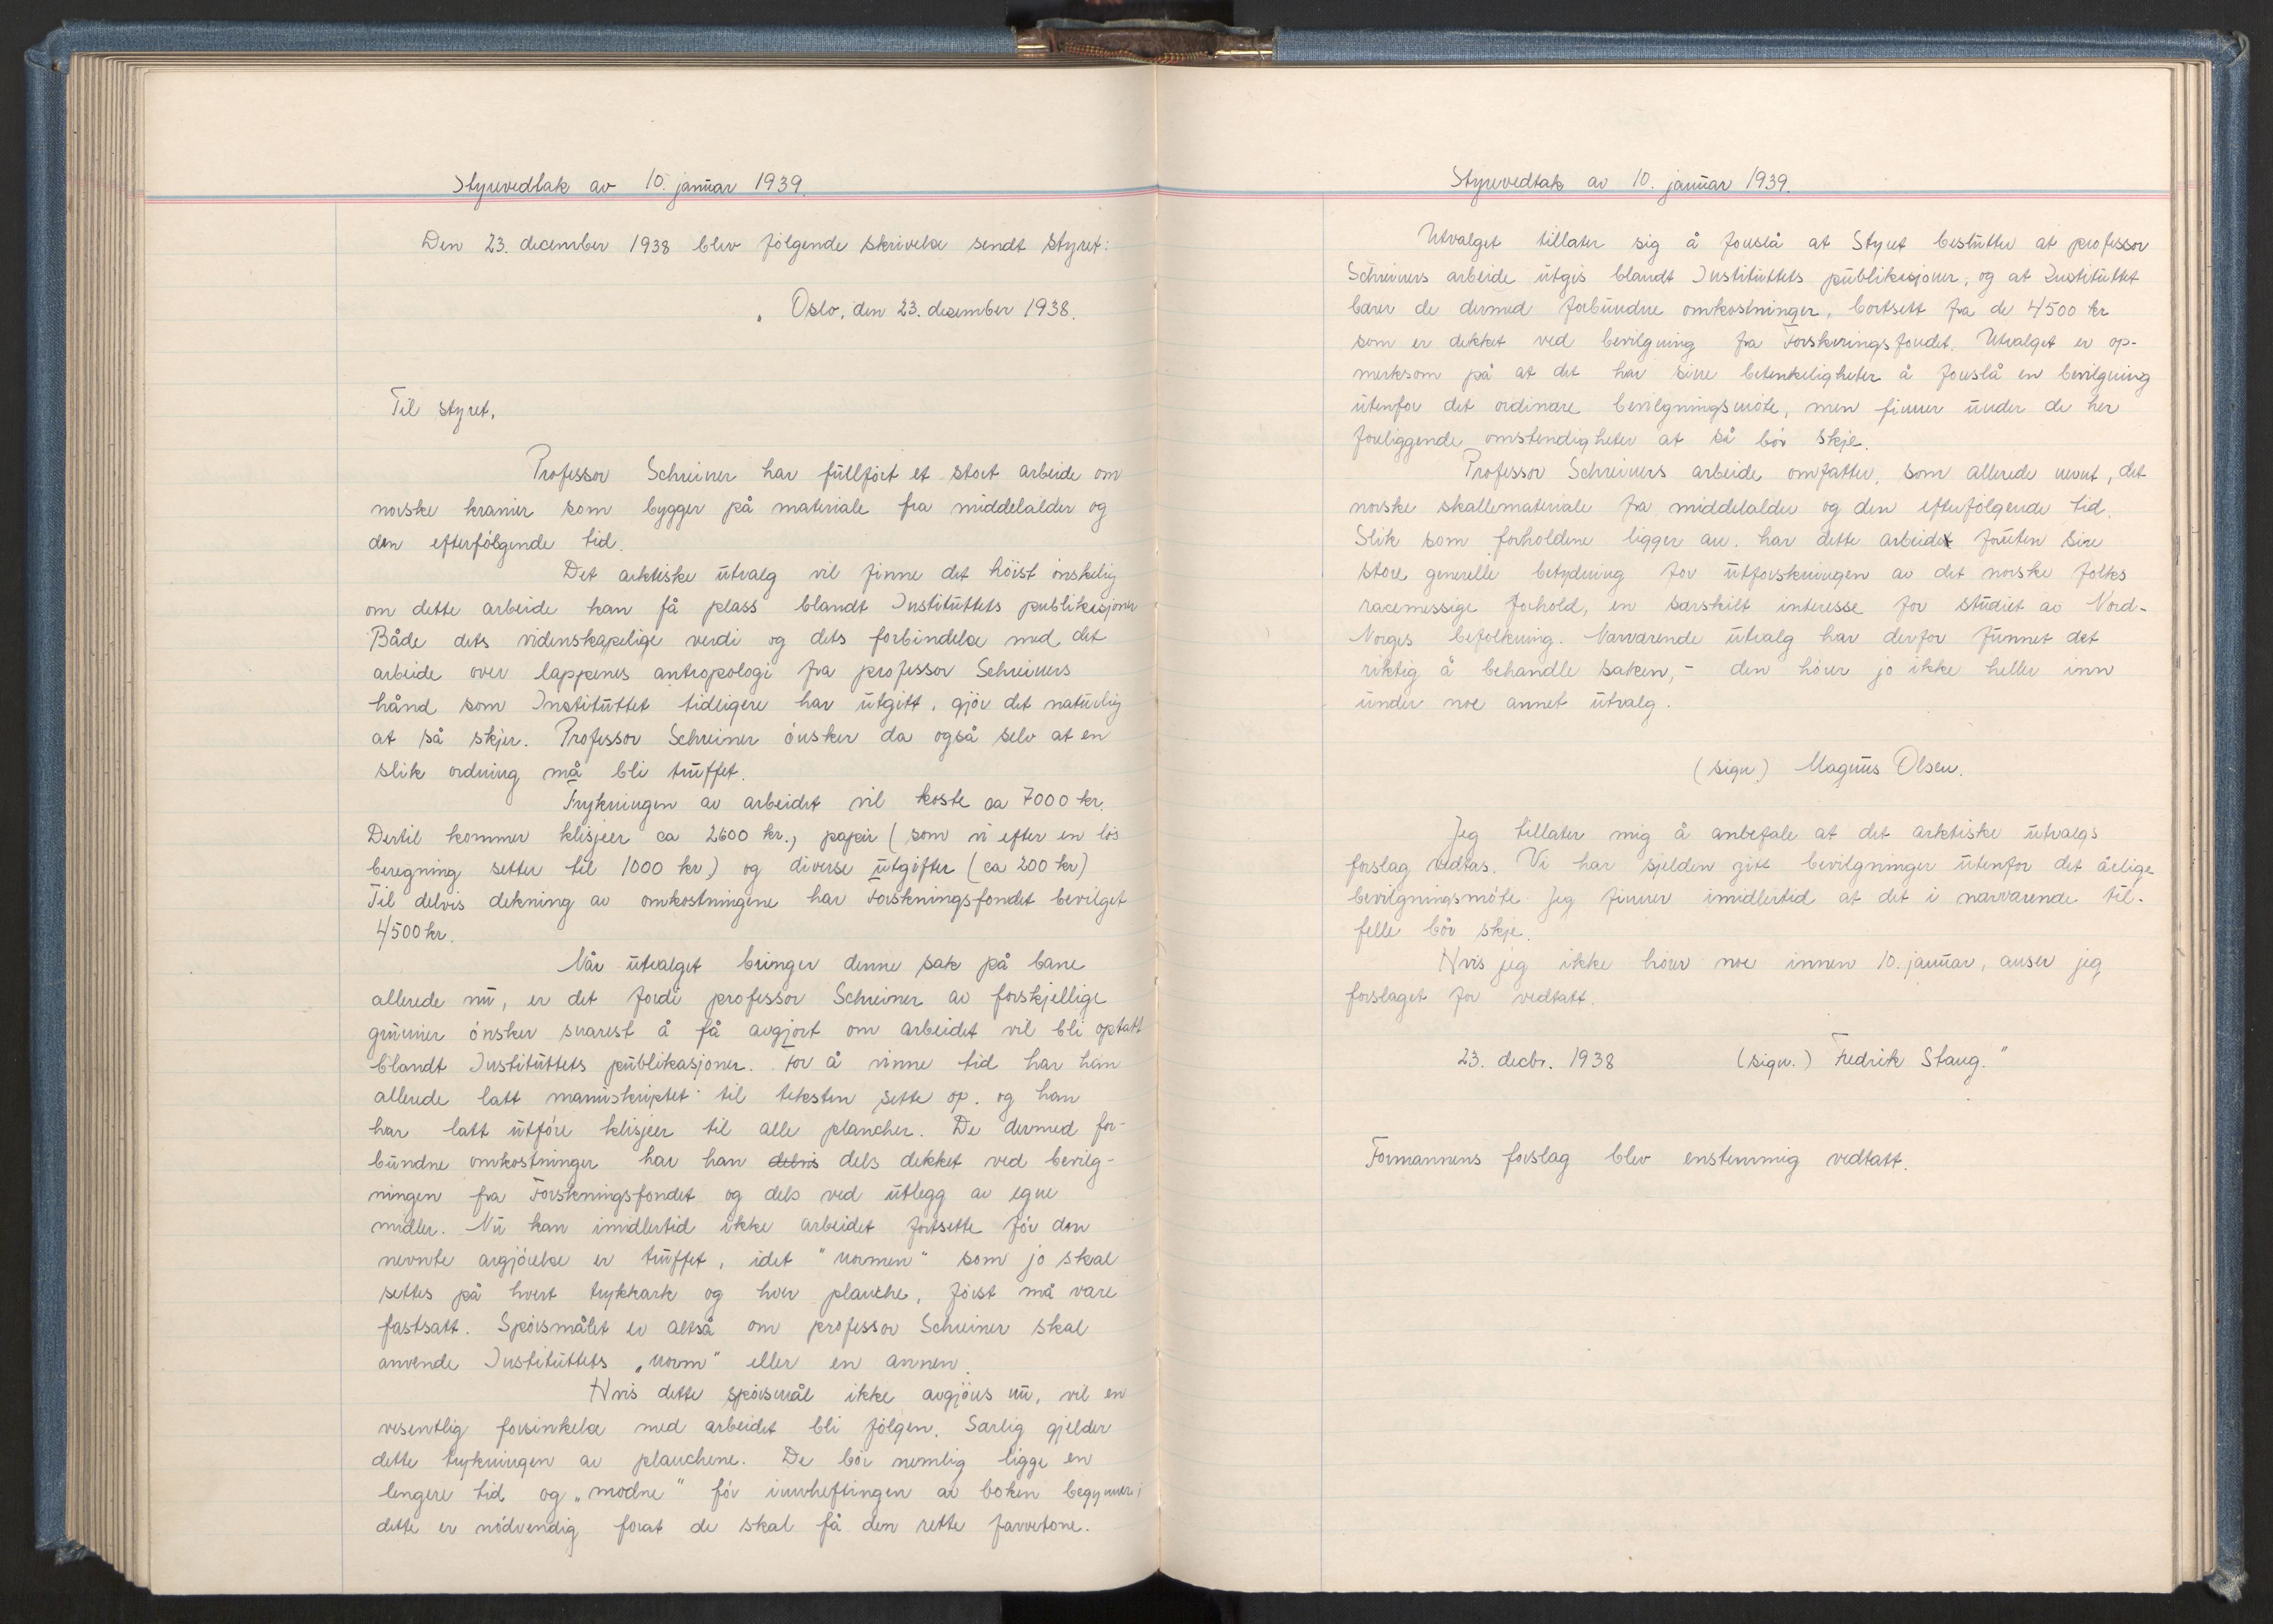 Styrevedtak av 10. januar 1939.
Den 23. december 1938 blev følgende skrivelse sendt styret:
„Oslo, den 23. desember 1938.
Til styret,
Professor Schreiner har fullført et stort arbeide om
norske kranier som bygger på materiale fra middelalder og
den efterfølgende tid.
Det arktiske utvalg vil finne det høist ønskelig
om dette arbeide kan få plass blandt Instituttets publikasjoner
Både dets videnskapelige verdi og dets forbindelse med det
arbeide over lappenes antropologi fra professor Schreiners
hånd som Instituttet tidligere har utgitt, gjør det naturlig
at så skjer. Professor Schreiner ønsker da også selv at en
slik ordning må bli truffet.
Trykningen av arbeidet vil koste ca 7000 kr.
Dertil kommer klisjeer ca 2600 kr., papir (som vi efter en løs
beregning setter til 1000 kr.) og diverse utgifter (ca 200 kr)
Til delvis dekning av omkostningene har Forskningsfondet bevilget
4500 kr.
Når utvalget bringer denne sak på bane
allerede nu, er det fordi professor Schreiner av forskjellige
grunner ønsker snarest å få avgjort om arbeidet vil bli optatt
blandt Instituttets publikasjoner. For å vinne tid har han
allerede latt manuskriptet til teksten sette op. og han
har latt utføre klisjeer til alle plancher. De dermed for-
bundne omkostninger har han delvis dels dekket ved bevilg-
ningen fra Forskningsfondet og dels ved utlegg av egne
midler. Nu kan imidlertid ikke arbeidet fortsette før den
nevnte avgjørelse er truffet, idet "normen" som jo skal
settes på hvert trykkark og hver planche, først må være
fastsatt. Spørsmålet er altså om professor Schreiner skal
anvende Instituttets „norm" eller en annen.
Hvis dette spørsmål ikke avgjøres nu, vil en
vesentlig forsinkelse med arbeidet bli følgen. Særlig gjelder
dette trykningen av planchene. De bør nemlig ligge en
lengere tid og „modne" før innheftingen av boken begynner;
dette er nødvendig forat de skal få den rette farvetone.
Styrevedtak av 10. januar 1939.
Utvalget tillater sig å foreslå at Styret beslutter at professor
Schreiners arbeide utgis blandt Instituttets publikasjoner, og at Instituttet
bærer de dermed forbundne omkostninger, bortsett fra de 4500 kr
som er dekket ved bevilgning fra Forskningsfondet. Utvalget er op-
merksom på at det har sine betenkeligheter å foreslå en bevilgning
utenfor det ordinære bevilgningsmøte, men finner under de her
foreliggende omstendigheter at så bør skje.
Professor Schreiners arbeide omfatter, som allerede nevnt, det
norske skallemateriale fra middelalder og den efterfølgende tid.
Slik som forholdene ligger an, har dette arbeide foruten sine
store generelle betydning for utforskningen av det norske folks
racemessige forhold, en særskilt interesse for studiet av Nord-
Norges befolkning. Nærværende utvalg har derfor funnet det
riktig å behandle saken, - den hører jo ikke heller inn
under noe annet utvalg.
(sign) Magnus Olsen.
Jeg tillater mig å anbefale at det arktiske utvalgs
forslag vedtas. Vi har sjelden gitt bevilgninger utenfor det årlige
bevilgningsmøte. Jeg finner imidlertid at det i nærværende til-
felle bør skje.
Hvis jeg ikke hører noe innen 10. januar, anser jeg
forslaget for vedtatt.
23. decbr. 1938 (sign.) Fredrik Stang."
Formannens forslag blev enstemmig vedtatt.